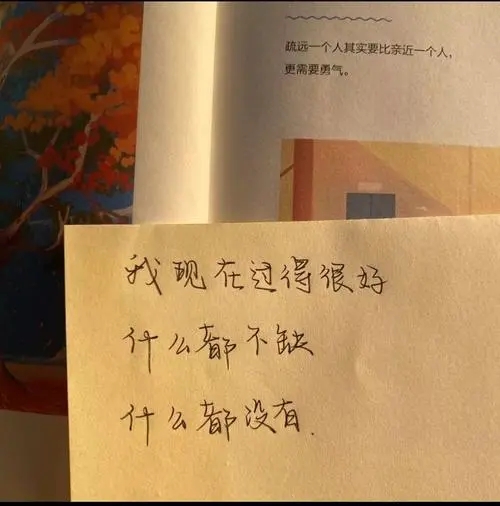 疏远一个人其实要比亲近一个人，
更需要勇气。
我现在过得很好
什么都不缺
什么都没有.